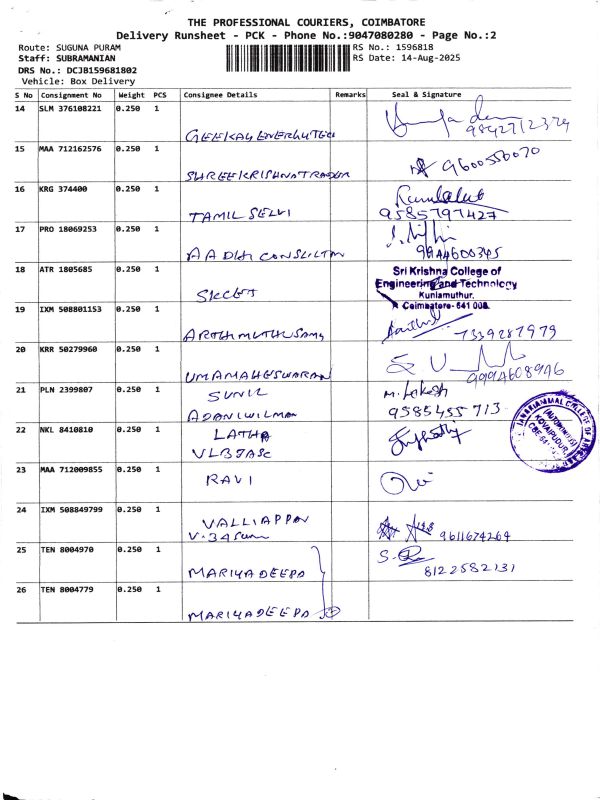 THE PROFESSIONAL COURIERS, COIMBATORE
Delivery Runsheet - PCK - Phone No.:9047080280 - Page No.:2
Route: SUGUNA PURAM
Staff: SUBRAMANIAN
DRS No.: DCJB159681802
Vehicle: Box Delivery
RS No.: 1596818
RS Date: 14-Aug-2025
S No Consignment No Weight PCS Consignee Details Remarks Seal & Signature
14 SLM 376108221 0.250 1
9842712379
15 MAA 712162576 0.250 1
SHREEKRISHNATRADER 9600550070
16 KRG 374400 0.250 1
TAMIL SELVI 9585797427
17 PRO 18069253 0.250 1
AADHI 9944600345
18 ATR 1805685 0.250 1
SKCET
Sri Krishna College of
Engineering and Technology
Kuniamuthur,
Coimbatore- 641 008.
19 IXM 508801153 0.250 1
7339287979
20 KRR 50279960 0.250 1
UMAMAHESWARAN 9994608946
21 PLN 2399807 0.250 1
SUNIL
9585455713
22 NKL 8410810 0.250 1
LATHA
23 MAA 712009855 0.250 1
RAVI Ravi
24 IXM 508849799 0.250 1
VALLIAPPAN
9611674264
25 TEN 8004970 0.250 1
MARIYADEEPA 8122582131
26 TEN 8004779 0.250 1
MARIYADEEPA